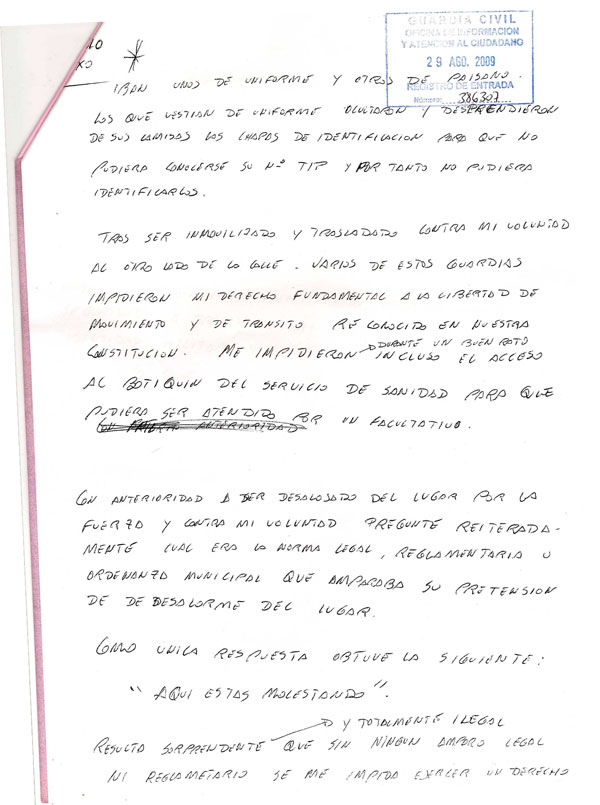 GUARDIA CIVIL
OFICINA DE INFORMACION
Y ATENCION AL CIUDADANO
29 AGO. 2009
REGISTRO DE ENTRADA
Número: 386307
IBAN UNOS DE UNIFORME Y OTROS DE PAISANO.
LOS QUE VESTIAN DE UNIFORME OCULTARON Y DESPRENDIERON
DE SUS CAMISAS LAS CHAPAS DE IDENTIFICACION PARA QUE NO
PUDIERA CONOCERSE SU Nº TIP Y POR TANTO NO PUDIERA
IDENTIFICARLOS.
TRAS SER INMOVILIZADO Y TRASLADADO CONTRA MI VOLUNTAD
AL OTRO LADO DE LA CALLE. VARIOS DE ESTOS GUARDIAS
IMPIDIERON MI DERECHO FUNDAMENTAL A LA LIBERTAD DE
MOVIMIENTO Y DE TRANSITO RECONOCIDO EN NUESTRA
CONSTITUCION. ME IMPIDIERON DURANTE UN BUEN RATO INCLUSO EL ACCESO
AL BOTIQUIN DEL SERVICIO DE SANIDAD PARA QUE
PUDIERA SER ATENDIDO POR UN FACULTATIVO.
CON ANTERIORIDAD A SER DESALOJADO DEL LUGAR POR LA
FUERZA Y CONTRA MI VOLUNTAD PREGUNTE REITERADA-
MENTE CUAL ERA LA NORMA LEGAL, REGLAMENTARIA U
ORDENANZA MUNICIPAL QUE AMPARABA SU PRETENSION
DE DE DESALORME DEL LUGAR.
COMO UNICA RESPUESTA OBTUVE LA SIGUIENTE:
"AQUI ESTAS MOLESTANDO".
RESULTA SORPRENDENTE Y TOTALMENTE ILEGAL QUE SIN NINGUN AMPARO LEGAL
NI REGLAMETARIO SE ME IMPIDA EXERCER UN DERECHO